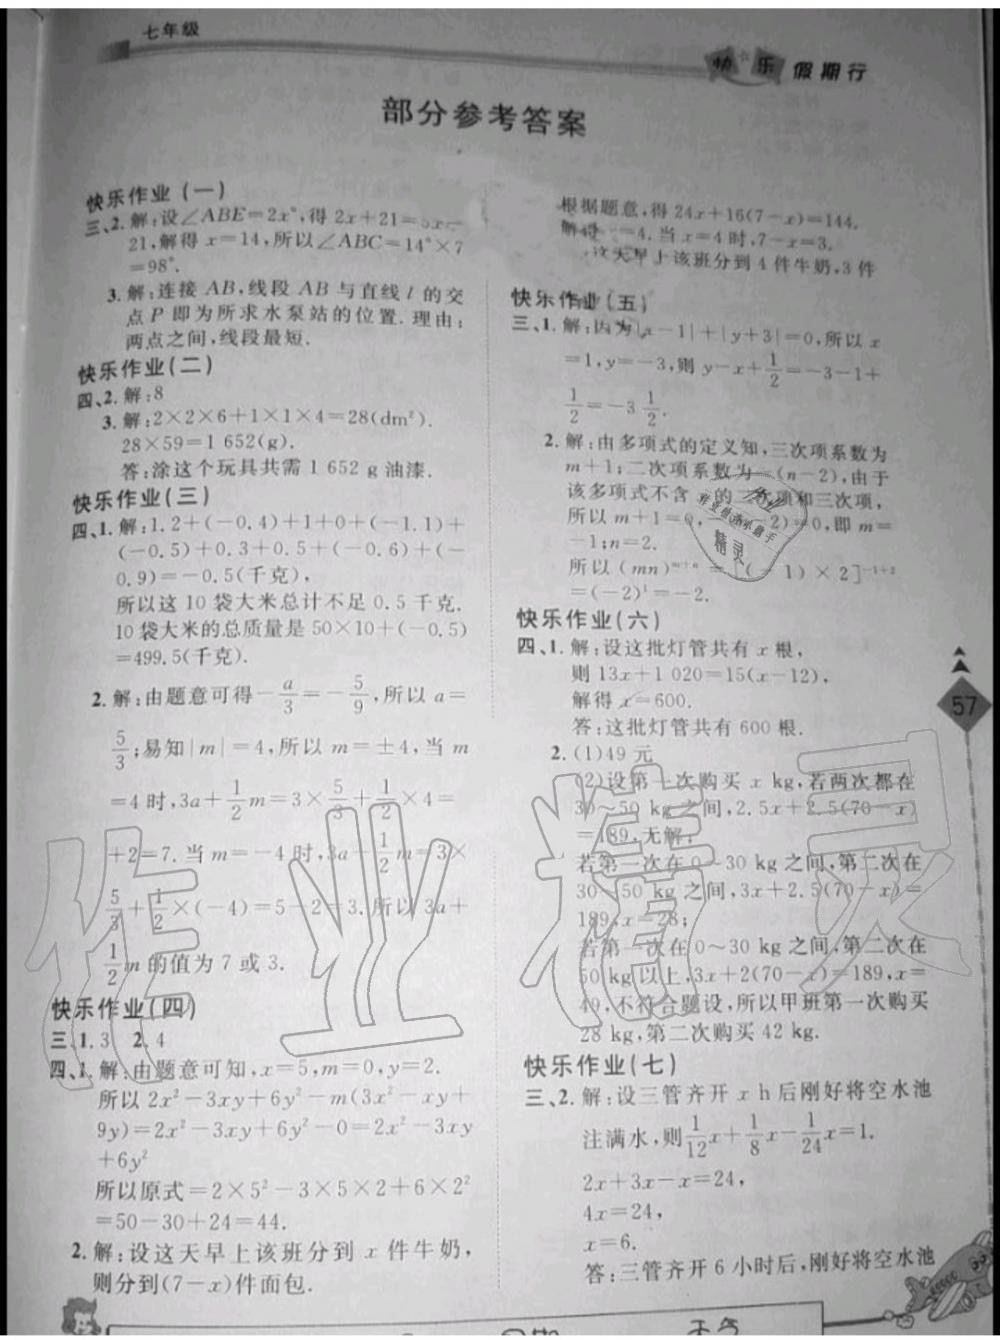 七年级
快乐假期行
部分参考答案
快乐作业(一)
三、2. 解:设∠ABE=2x°,得 2x+21=5x-
21,解得 x=14,所以∠ABC=14°×7
=98°.
3. 解:连接 AB,线段 AB 与直线 l 的交
点 P 即为所求水泵站的位置. 理由:
两点之间,线段最短.
快乐作业(二)
四、2. 解:8
3. 解:2×2×6+1×1×4=28(dm²).
28×59=1 652(g).
答:涂这个玩具共需 1 652 g 油漆.
快乐作业(三)
四、1. 解:1.2+(-0.4)+1+0+(-1.1)+
(-0.5)+0.3+0.5+(-0.6)+(-
0.9)=-0.5(千克),
所以这 10 袋大米总计不足 0.5 千克.
10 袋大米的总质量是 50×10+(-0.5)
=499.5(千克).
2. 解:由题意可得-a/3=-5/9,所以 a=
5/3;易知|m|=4,所以 m=±4,当 m
=4 时,3a+1/2m=3×5/3+1/2×4=
+2=7. 当 m=-4 时,3a+1/2m=3×
5/3+1/2×(-4)=5-2=3. 所以 3a+
1/2m 的值为 7 或 3.
快乐作业(四)
三、1. 3 2. 4
四、1. 解:由题意可知,x=5,m=0,y=2.
所以 2x²-3xy+6y²-m(3x²-xy+
9y)=2x²-3xy+6y²-0=2x²-3xy
+6y²
所以原式=2×5²-3×5×2+6×2²
=50-30+24=44.
2. 解:设这天早上该班分到 x 件牛奶,
则分到(7-x)件面包.
根据题意,得 24x+16(7-x)=144.
解得 =4. 当 x=4 时,7-x=3.
这天早上该班分到 4 件牛奶,3 件
快乐作业(五)
三、1. 解:因为|x-1|+|y+3|=0,所以 x
=1,y=-3,则 y-x+1/2=-3-1+
1/2=-3 1/2.
2. 解:由多项式的定义知,三次项系数为
m+1;二次项系数为-(n-2),由于
该多项式不含 的二次项和三次项,
所以 m+1=0, -2)=0,即 m=
-1;n=2.
所以 (mn)ᵐ⁺ⁿ=[(-1)×2]⁻¹⁺²
=(-2)¹=-2.
快乐作业(六)
四、1. 解:设这批灯管共有 x 根,
则 13x+1 020=15(x-12),
解得 x=600.
答:这批灯管共有 600 根.
2. (1)49 元
(2)设第一次购买 x kg,若两次都在
30~50 kg 之间,2.5x+2.5(70-x)
=189,无解;
若第一次在 0~30 kg 之间,第二次在
30~50 kg 之间,3x+2.5(70-x)=
189,x=28;
若第一次在 0~30 kg 之间,第二次在
50 kg 以上,3x+2(70-x)=189,x=
49,不符合题设,所以甲班第一次购买
28 kg,第二次购买 42 kg.
快乐作业(七)
三、2. 解:设三管齐开 x h 后刚好将空水池
注满水,则1/12x+1/8x-1/24x=1.
2x+3x-x=24,
4x=24,
x=6.
答:三管齐开 6 小时后,刚好将空水池
57
作业精灵